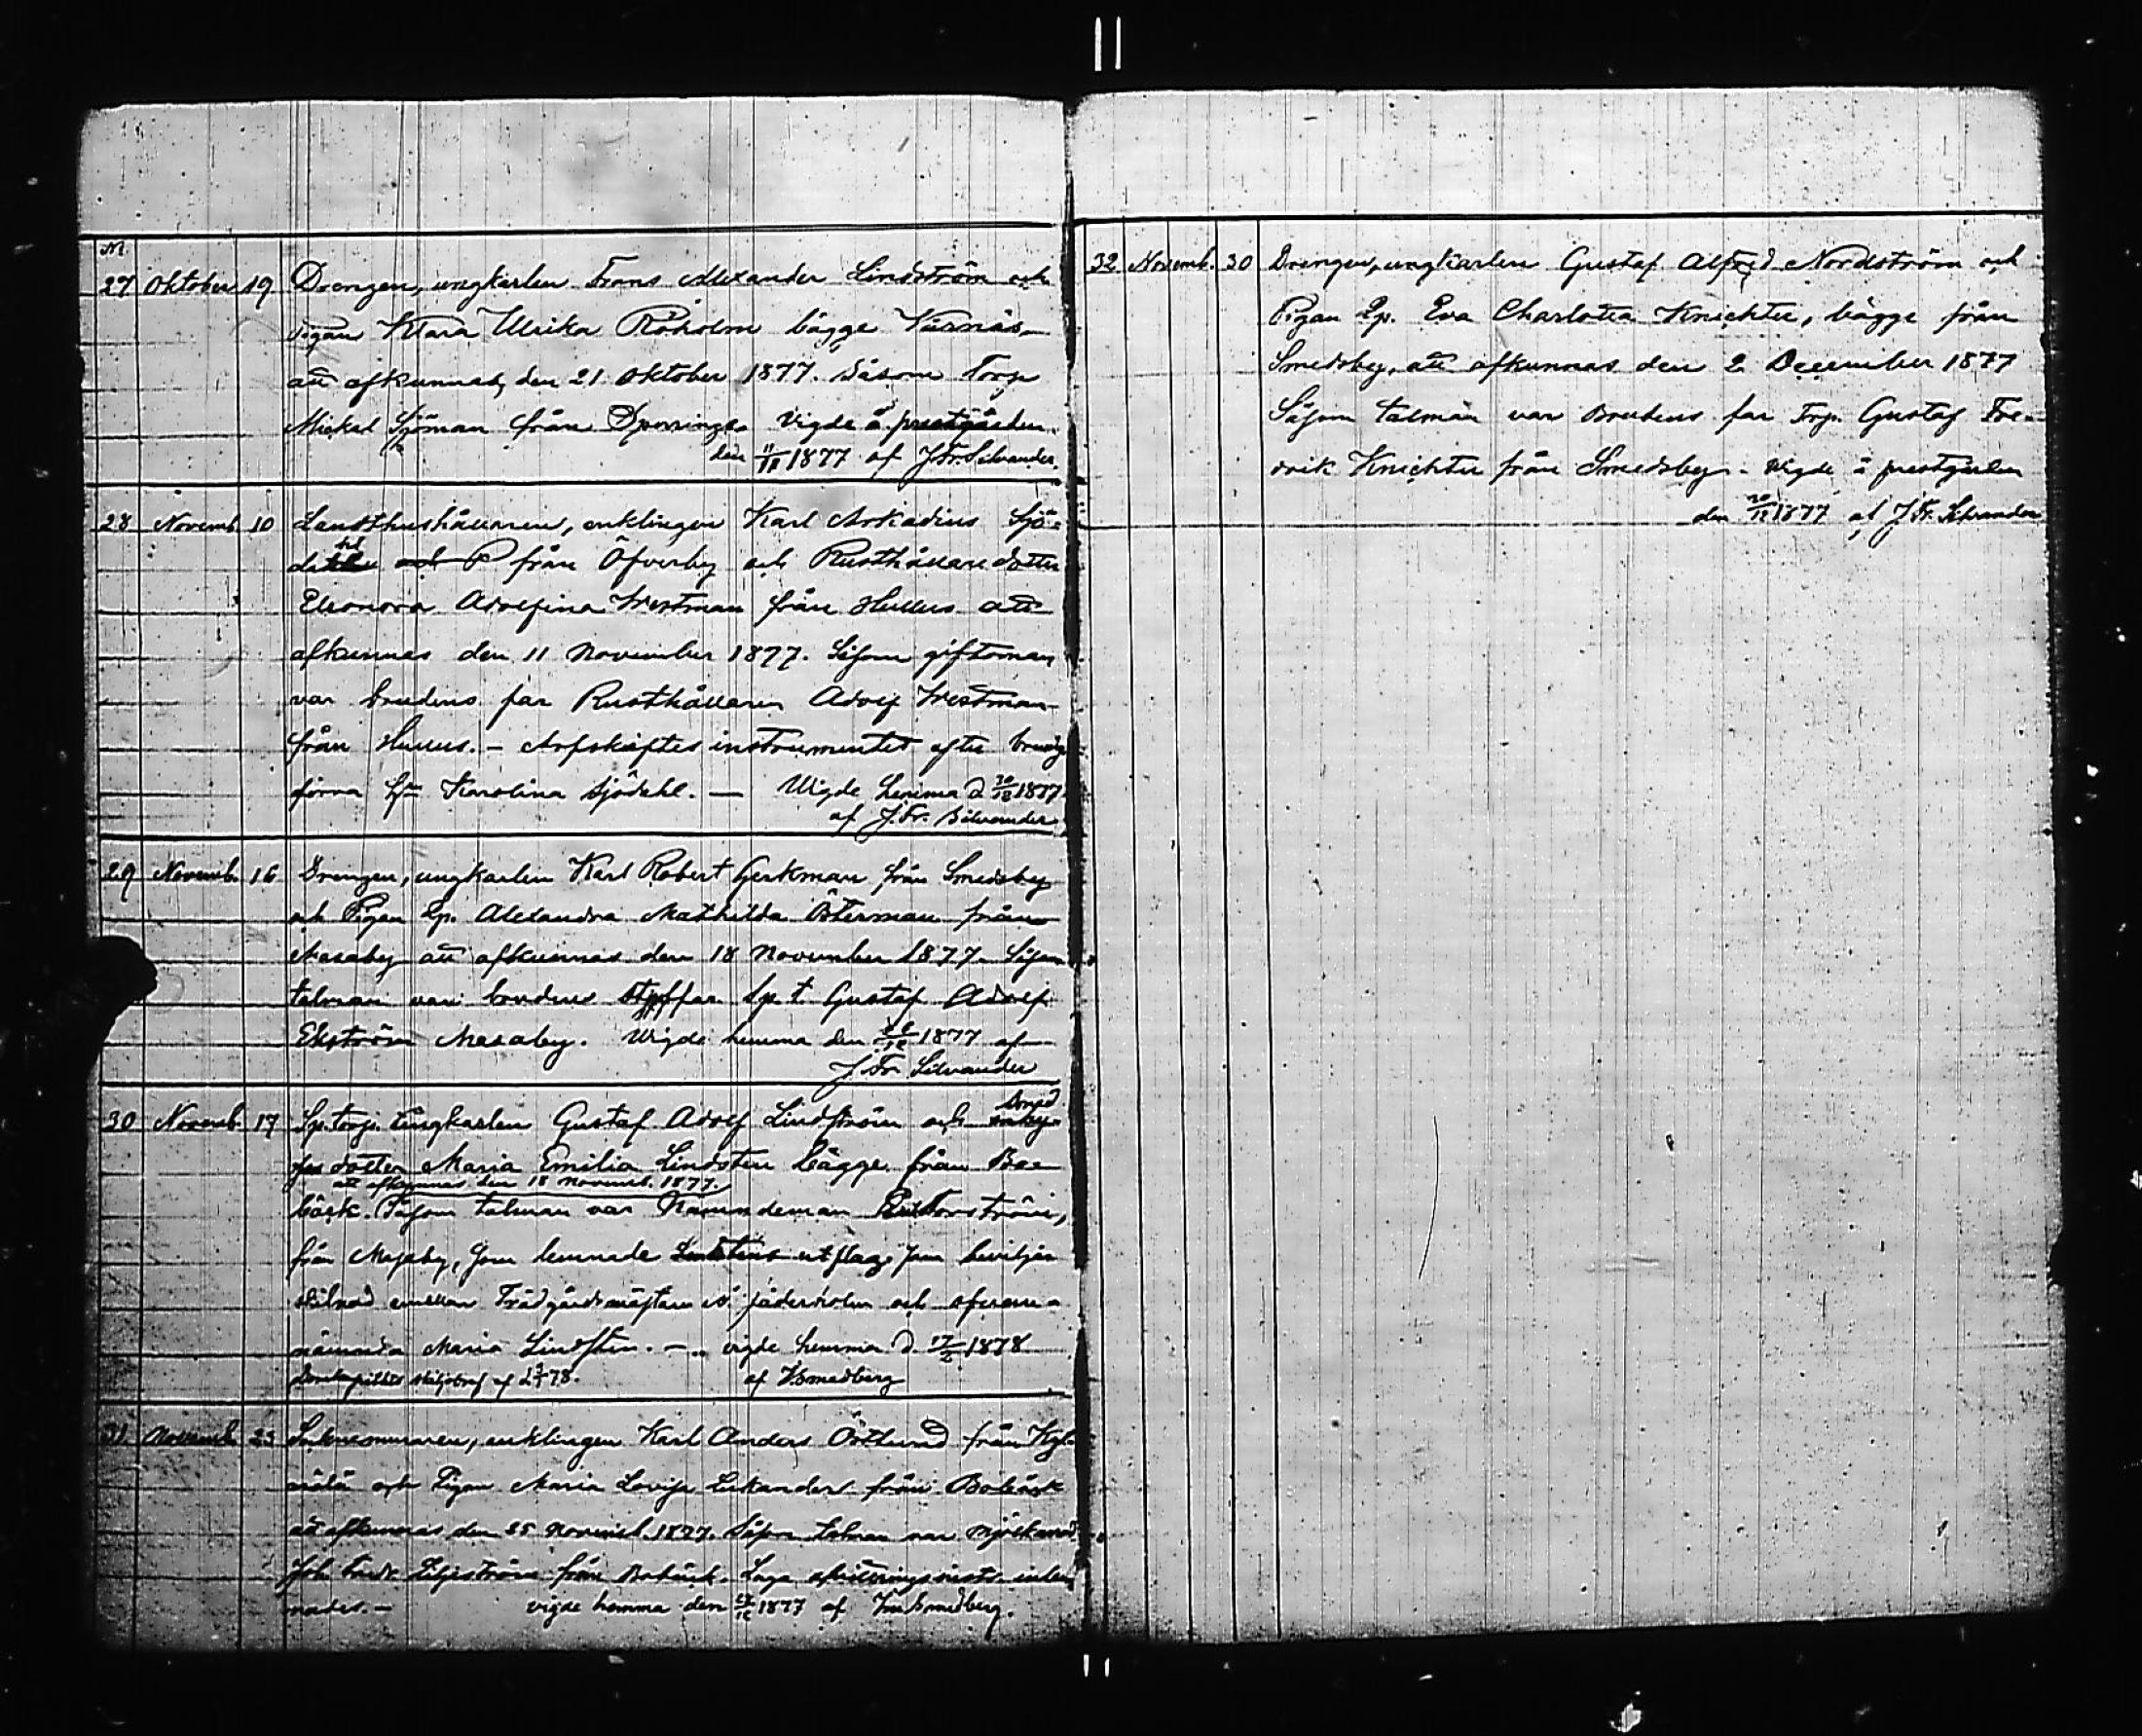 N.
27 Oktober 19 Drengen, ungkarlen Frans Alexander Lindström och
Pigan Klara Ulrika Röholm bägge Kurnäs
att afkunnas, den 21 Oktober 1877. Såsom Torp
Mickel Sjöman från Sperrings. Vigde å prestgården
den 11/11 1877 af J. Fr. Silvander.
28 Novemb. 10 Landthushållaren, enklingen Karl Arkadius Sjö-
dahl från Öfverby och Rusthållaredotter
Eleonora Adolfina Westman från Hullus att
afkunnas den 11 November 1877. Såsom giftoman
var brudens far Rusthållaren Adolf Westman
från Hullus. - Arfskiftes instrumentet efter
förra Karolina Sjödahl. — Wigde hemma d. 30/12 1877
af J. Fr. Silvander.
29 Novemb. 16 Drengen, ungkarlen Karl Robert Gerkman från Smedsby
och Pigan Ep. Alexandra Mathilda Österman från
Masaby att afkunnas den 18 November 1877. Såsom
talman var brudens styffar Sp. t. Gustaf Adolf
Ekström Masaby. Wigde hemma den 1877 af
J. Fr. Silvander
30 Novemb. 17 Sp. torp. Ungkarlen Gustaf Adolf Lindström och
dotter Maria Emilia Lindsten bägge från Bo-
att afkunnas den 18 Novemb. 1877.
bäck. Såsom talman var Nämndeman
från Masaby, som lemnade utslag som beviljar
skilnad emellan Trädgårdsmästare Söderholm och ofvan-
nämnda Maria Lindsten. — vigde hemma d. 17/2 1878
Domkapitlets skiljobref af 78. af Smedberg
31 Novemb. 23 Socknemuraren, enklingen Karl Anders Östlund från Kyl-
mälä och Pigan Maria Lovisa Lekander från Bobäck
att afkunnas den 25 Novemb. 1877. Såsom talman var
Joh. Fredr. Liljeström från Bobäck. Laga afvittringsinstr. inlem-
nades. — vigde hemma den 1877 af Smedberg.
32 Novemb. 30 Drengen, ungkarlen Gustaf Alfred Nordström och
Pigan Ep. Eva Charlotta Knichter, bägge från
Smedsby, att afkunnas den 2 December 1877
Såsom talman var Brudens far Torp. Gustaf Fre-
drik Knichter från Smedsby. - Wigde å prestgården
den 30/12 1877 af J. Fr. Silvander